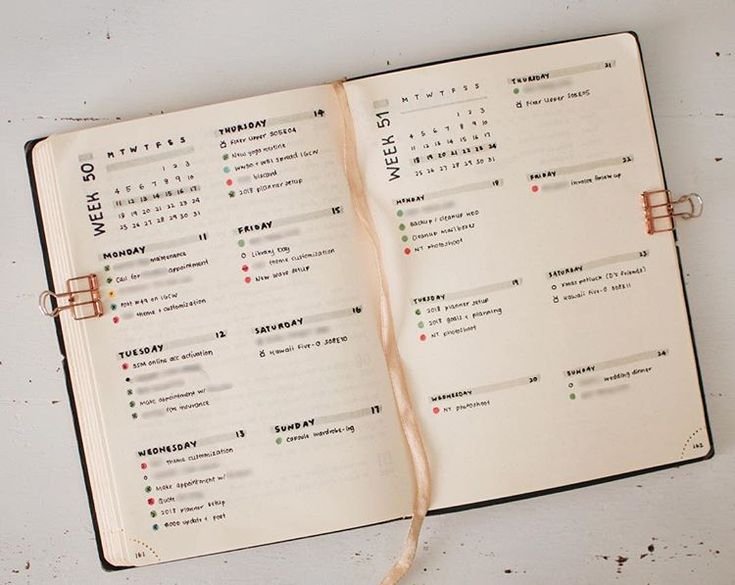 WEEK 50
M T W T F S S
1 2 3
4 5 6 7 8 9 10
11 12 13 14 15 16 17
18 19 20 21 22 23 24
25 26 27 28 29 30 31
MONDAY 11
maintenance
Call for appointment
Post #49 on IGCW
theme + customization
TUESDAY 12
BSM online acc activation
Make appointment w/
for insurance
WEDNESDAY 13
theme customization
Make appointment w/
Quote
2018 planner setup
update + post
161
THURSDAY 14
Fixer Upper S05E04
New yoga routine
WW50 + WB1 spread IGCW
blizcard
2018 planner setup
FRIDAY 15
Library Day
theme customization
New Wave setup
SATURDAY 16
Hawaii Five-0 S08E10
SUNDAY 17
Capsule wardrobe-ing
WEEK 51
M T W T F S S
1 2 3
4 5 6 7 8 9 10
11 12 13 14 15 16 17
18 19 20 21 22 23 24
25 26 27 28 29 30 31
MONDAY 18
Backup / cleanup HDD
Cleanup mailboxes
NT photoshoot
TUESDAY 19
2018 planner setup
2018 goals + planning
NT photoshoot
WEDNESDAY 20
NT photoshoot
THURSDAY 21
Fixer Upper S05E05
FRIDAY 22
invoice follow up
SATURDAY 23
Xmas potluck (DV friends)
Hawaii Five-0 S08E11
SUNDAY 24
wedding dinner
162